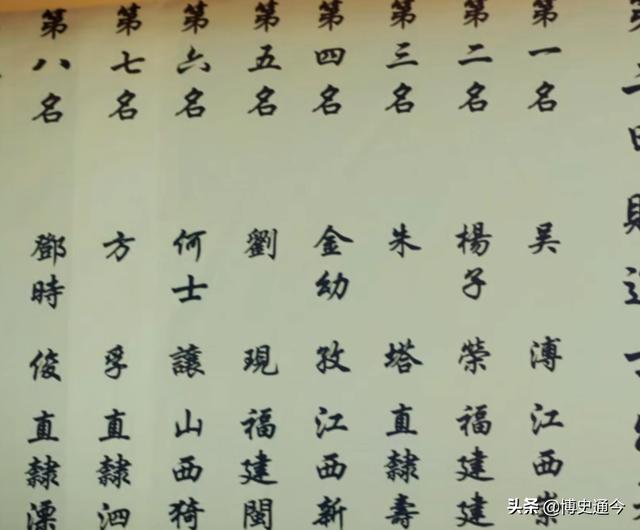 第一名 吳溥 江西
第二名 楊子榮 福建建
第三名 朱塔 直隸壽
第四名 金幼孜 江西新
第五名 劉現 福建閩
第六名 何士讓 山西猗
第七名 方孚 直隸泗
第八名 鄧時俊 直隸溧
头条 @博史通今